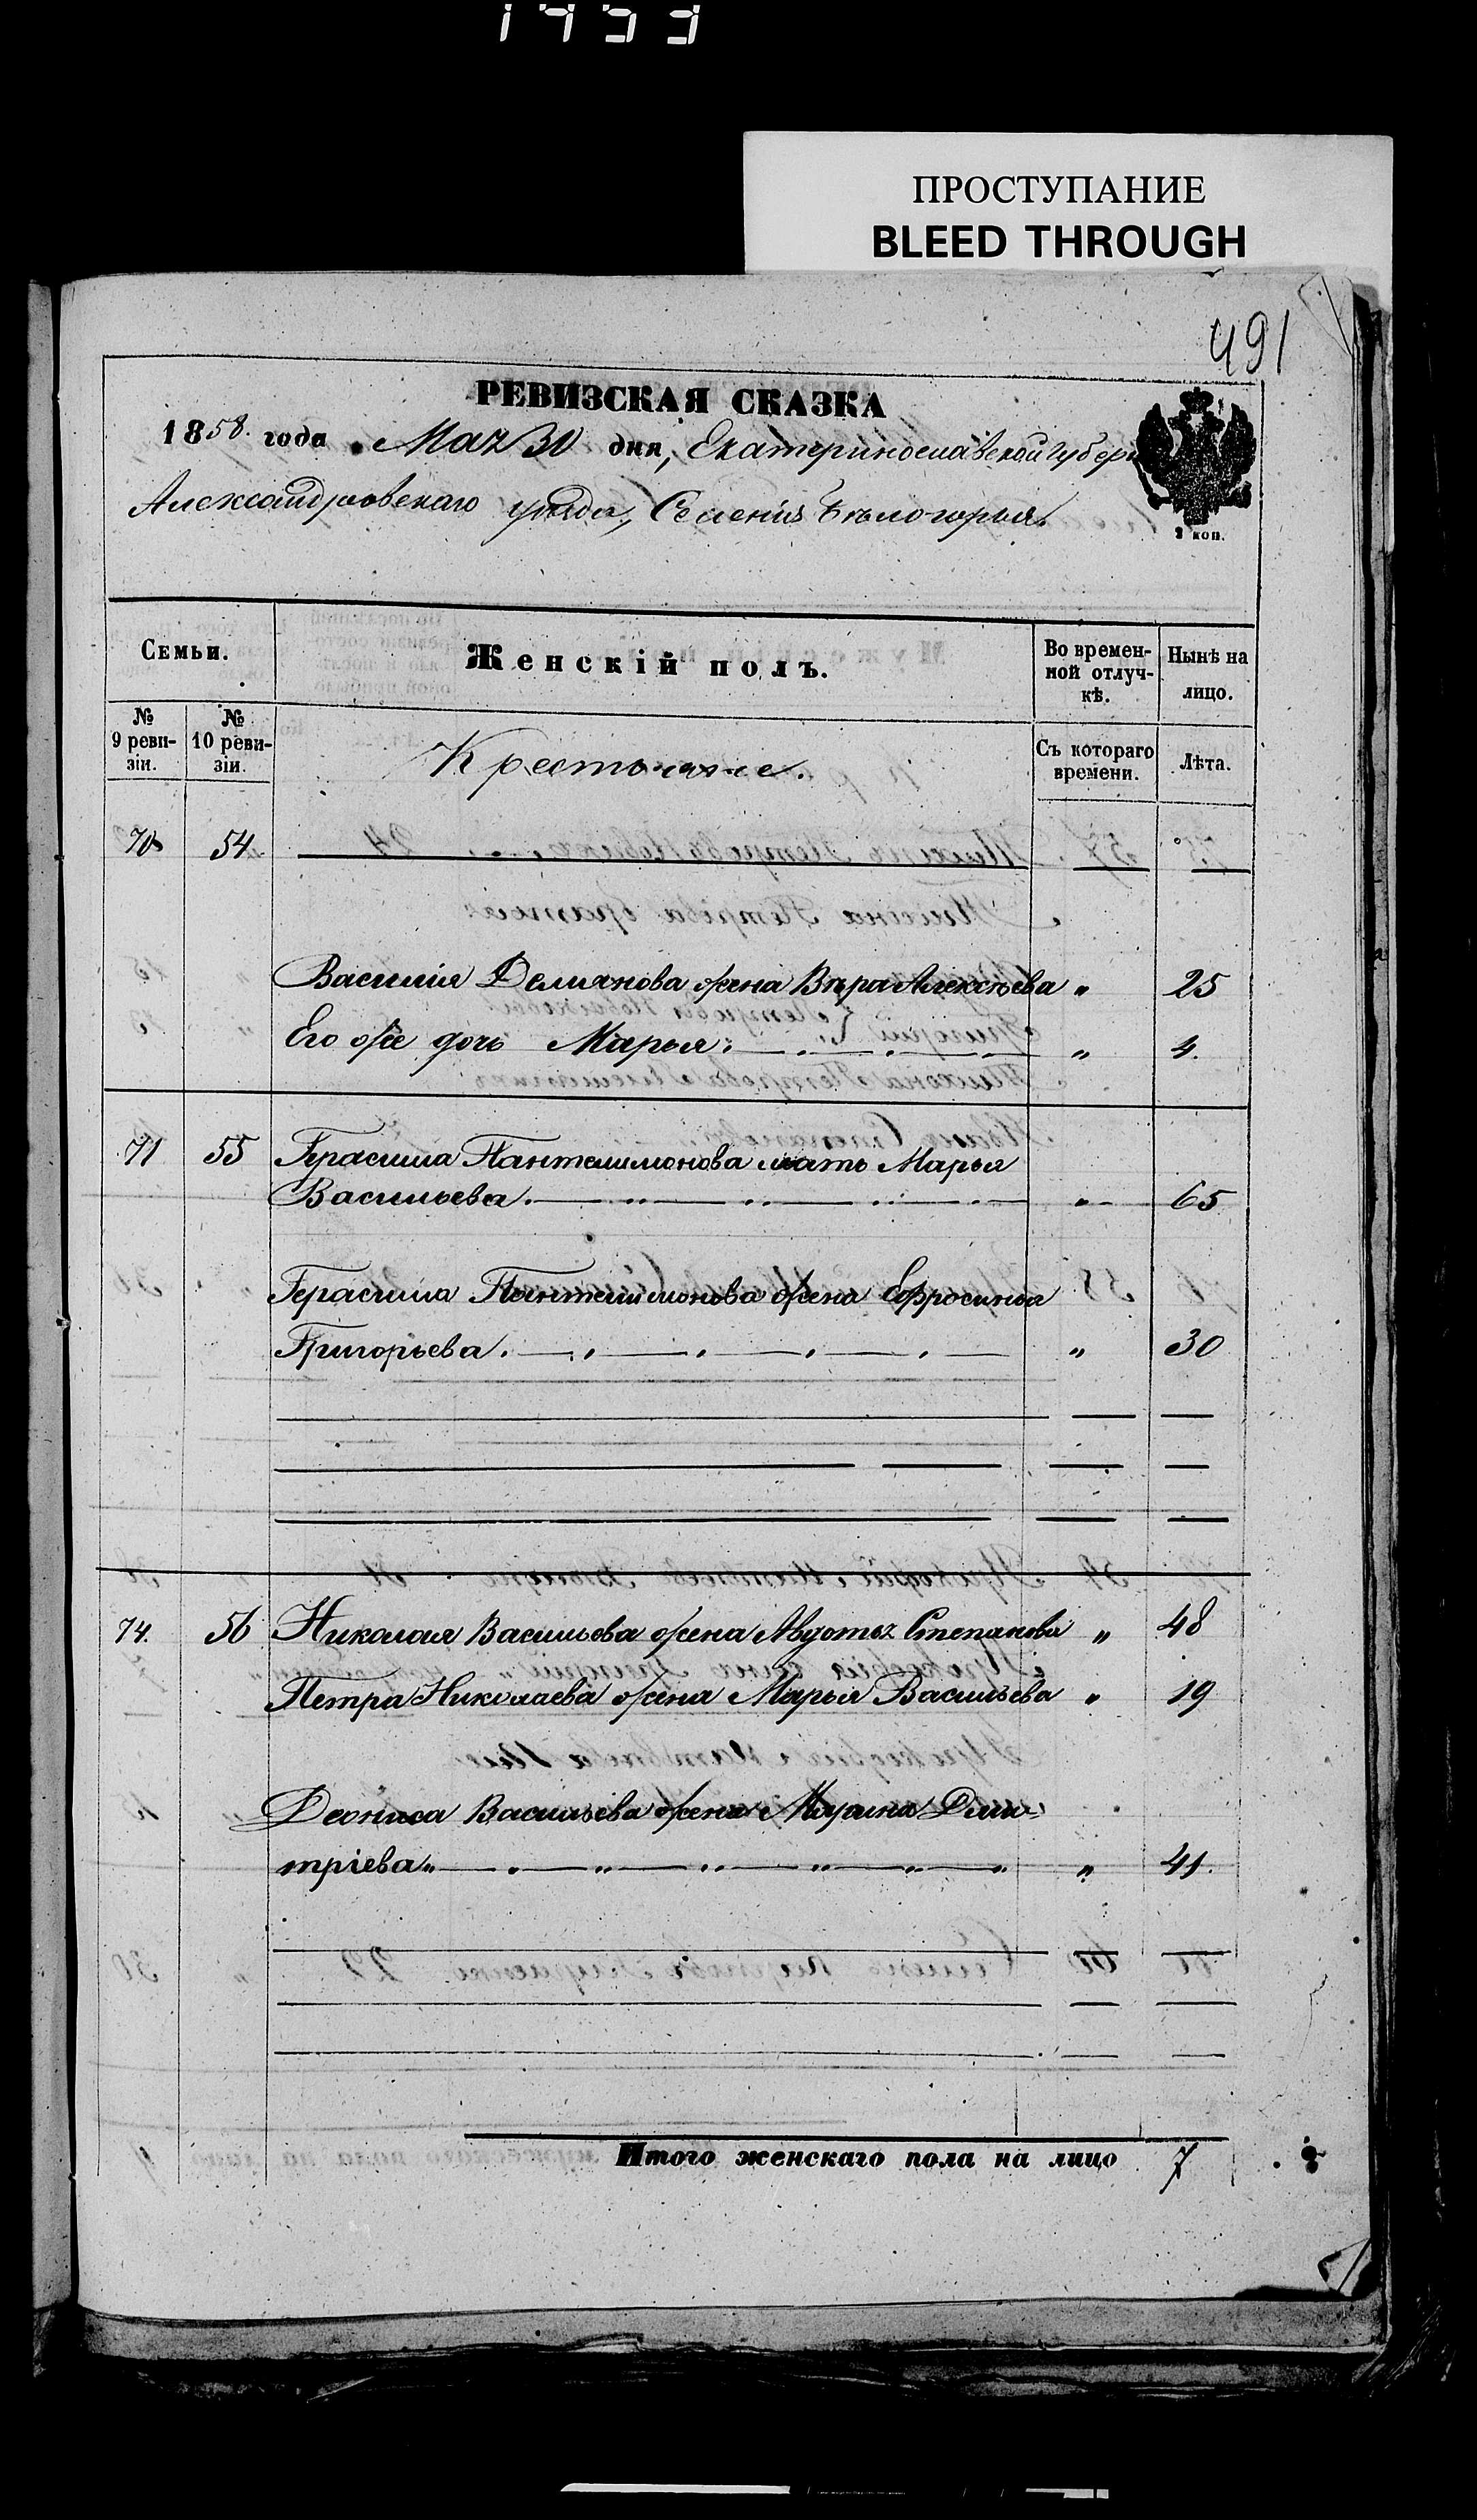 1933
ПРОСТУПАНИЕ
BLEED THROUGH
491
РЕВИЗСКАЯ СКАЗКА
1858 года Мая 30 дня, Екатеринославской Губерн
Александровскаго уѣзда, Селенія Бѣлогорья.
2 коп.
Семьи.
Женскій полъ.
Во времен-
ной отлуч-
кѣ.
Нынѣ на
лицо.
№
9 реви-
зіи.
№
10 реви-
зіи.
Крестьяне.
Съ котораго
времени.
Лѣта.
70 54
Василія Демянова жена Вѣра Алексѣева „ 25
Его же дочь Марья. „ 4.
71 55 Герасима Пантелимонова мать Марья
Васильева. „ 65
Герасима Пантелимонова жена Ефросинья
Григорьева. „ 30
74. 56 Николая Васильева жена Авдотья Степанова „ 48
Петра Николаева жена Марья Васильева „ 19
Деониса Васильева жена Марина Дми-
тріева „ 41.
Итого женскаго пола на лицо 7